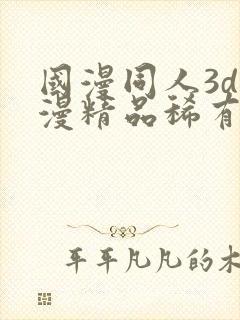 國漫同人3d
漫精品稀有
平平凡凡的木